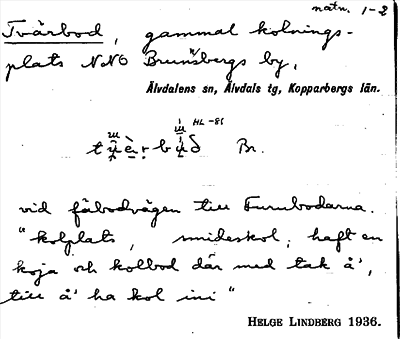 natn. 1-2
Tvärbod, gammal kolnings-
plats N.N.O Brunnsbergs by,
Älvdalens sn, Älvdals tg, Kopparbergs län.
HL -81
Br.
vid fäbodvägen till Furubodarna.
"kolplats, smideskol; haft en
koja och kolbod där med 'tak å',
till å' ha kol ini"
HELGE LINDBERG 1936.